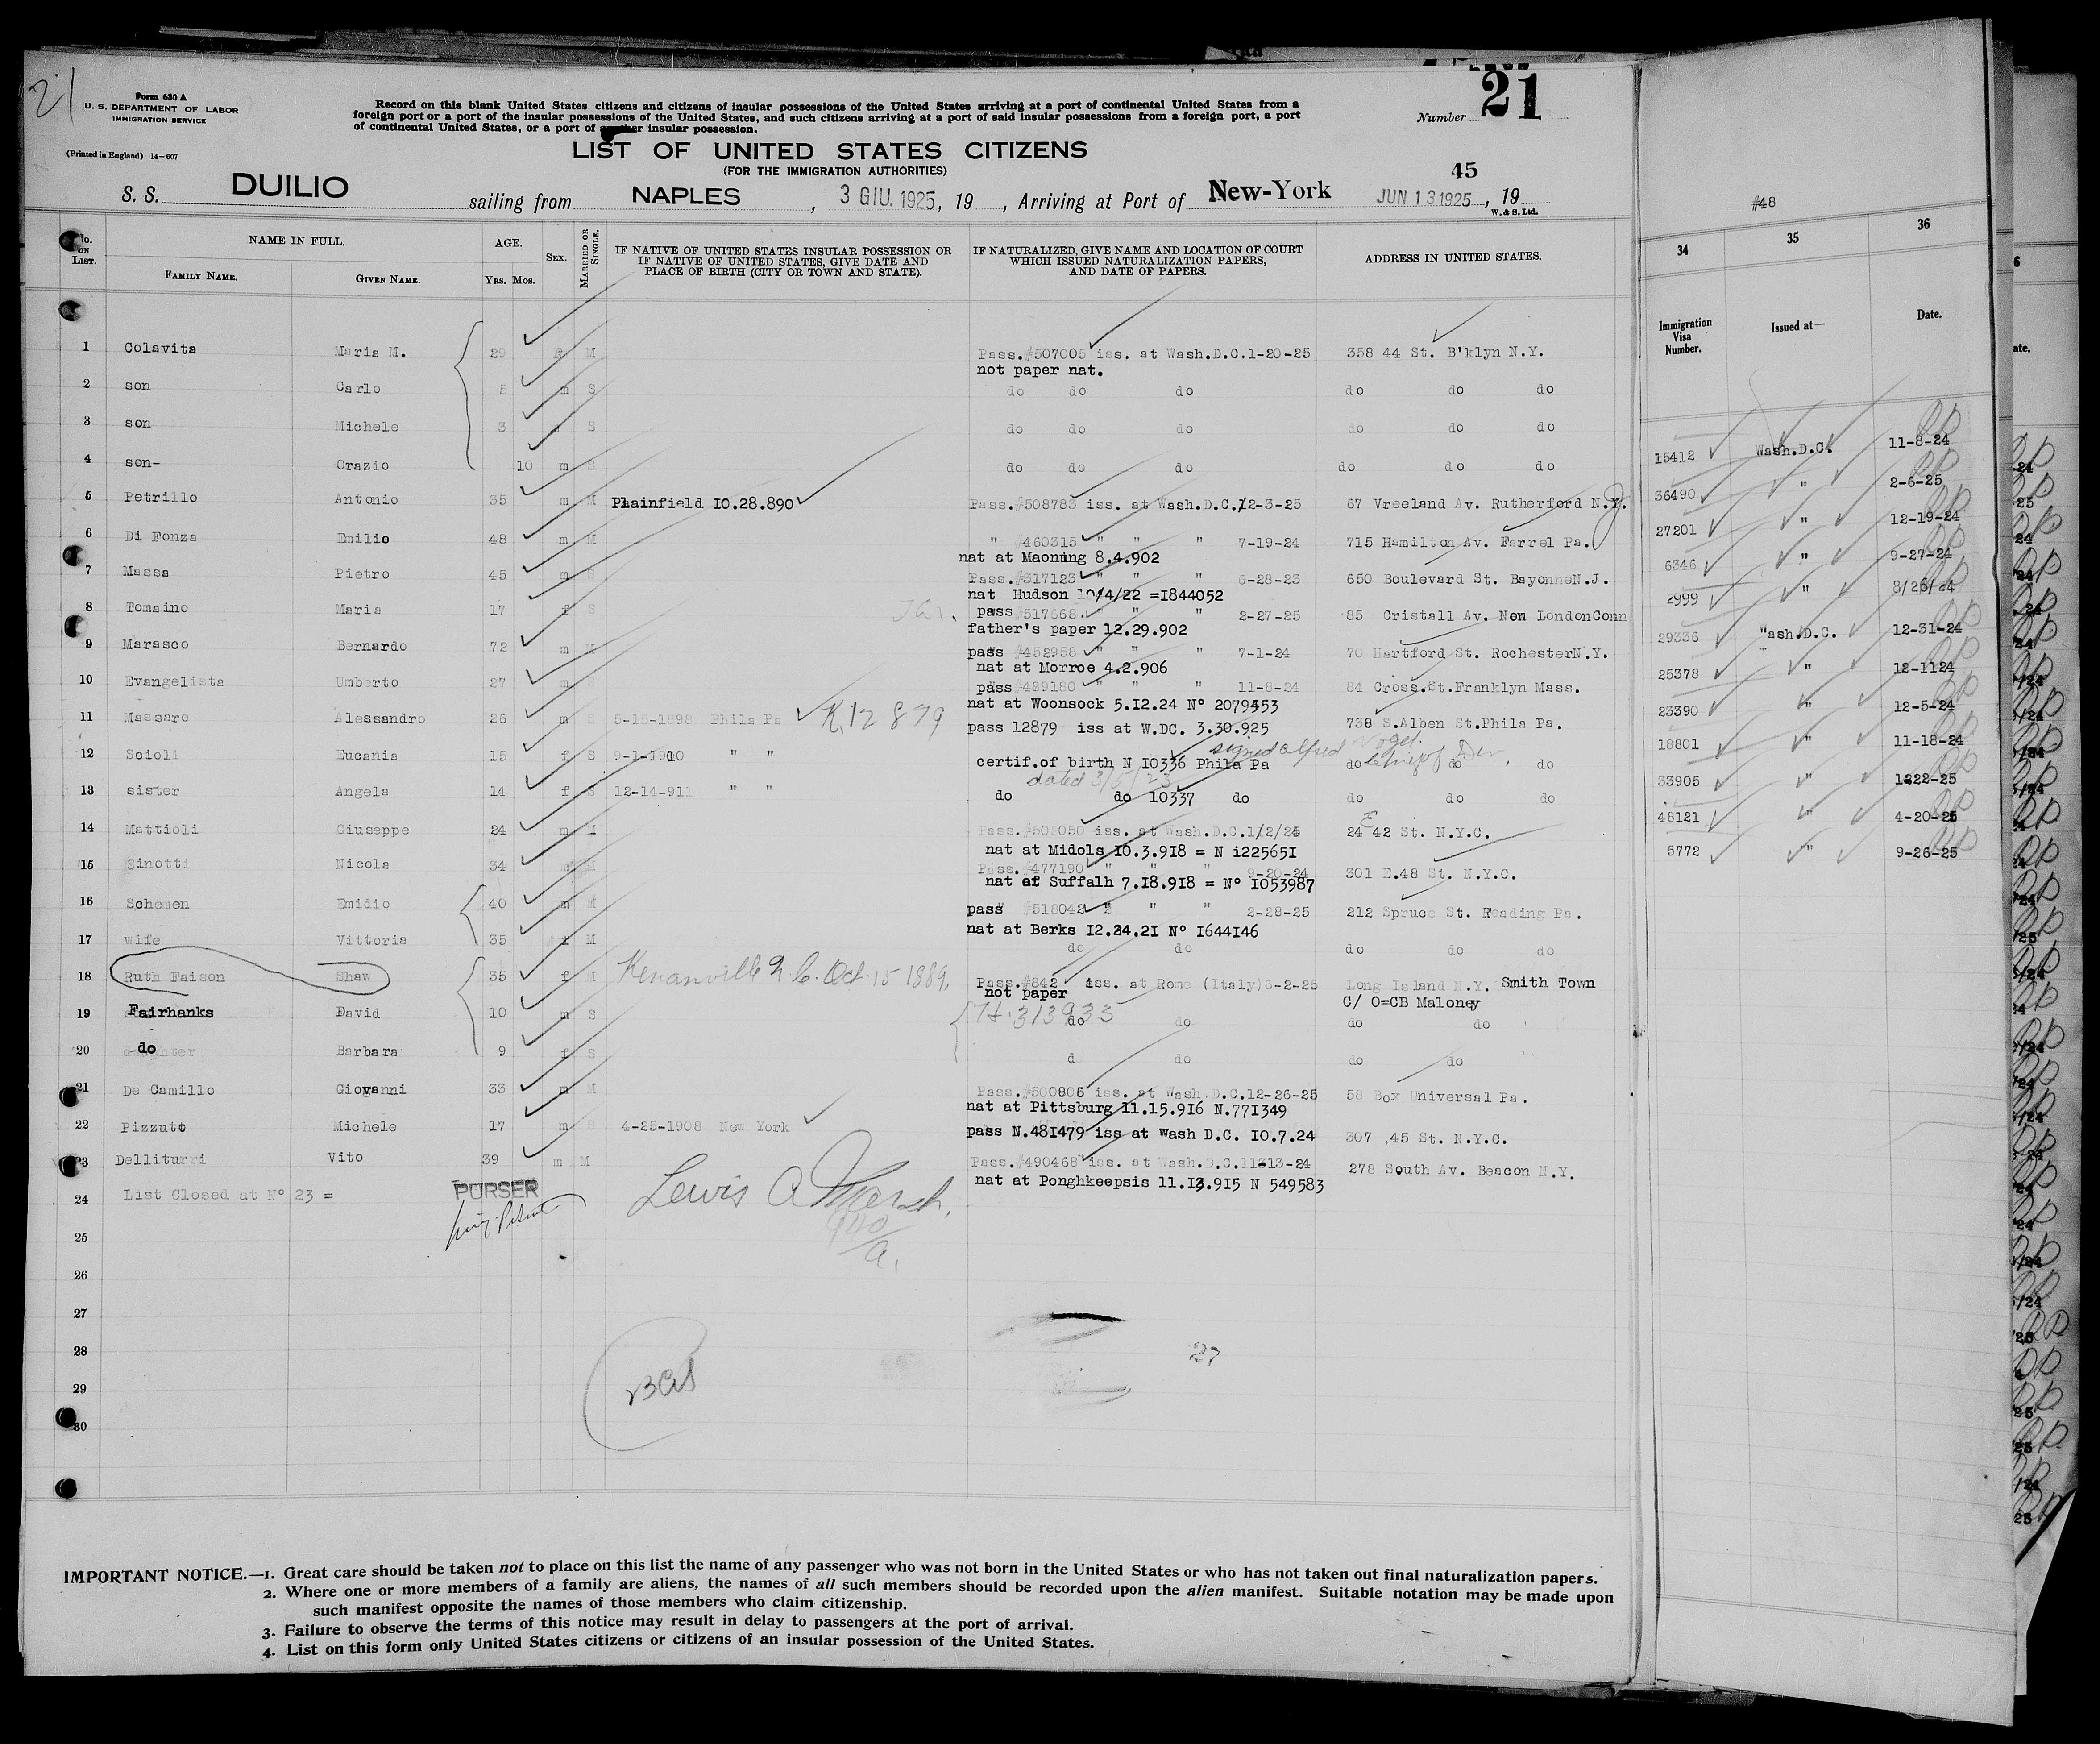 21
Form 630 A
U. S. DEPARTMENT OF LABOR
IMMIGRATION SERVICE
(Printed in England) 14-607
Record on this blank United States citizens and citizens of insular possessions of the United States arriving at a port of continental United States from a
foreign port or a port of the insular possessions of the United States, and such citizens arriving at a port of said insular possessions from a foreign port, a port
of continental United States, or a port of another insular possession.
Number 21
LIST OF UNITED STATES CITIZENS
(FOR THE IMMIGRATION AUTHORITIES)
45
S. S. DUILIO sailing from NAPLES, 3 GIU. 1925, 19 , Arriving at Port of New-York JUN 13 1925, 19
W. & S. Ltd.
#48
No. ON LIST. NAME IN FULL. FAMILY NAME. GIVEN NAME. AGE. YRS. MOS. SEX. MARRIED OR SINGLE.
IF NATIVE OF UNITED STATES INSULAR POSSESSION OR
IF NATIVE OF UNITED STATES, GIVE DATE AND
PLACE OF BIRTH (CITY OR TOWN AND STATE).
IF NATURALIZED, GIVE NAME AND LOCATION OF COURT
WHICH ISSUED NATURALIZATION PAPERS,
AND DATE OF PAPERS.
ADDRESS IN UNITED STATES.
1 Colavita Maria M. 29 F M Pass.#507005 iss. at Wash.D.C.1-20-25 358 44 St. B'klyn N.Y.
not paper nat.
2 son Carlo 5 m S do do do do do do
3 son Michele 3 S do do do do do do
4 son- Orazio 10 m S do do do do do do
5 Petrillo Antonio 35 m M Plainfield 10.28.890 Pass.#508783 iss. at Wash.D.C.12-3-25 67 Vreeland Av. Rutherford N.J.
6 Di Fonza Emilio 48 m M " #460315 " " " 7-19-24 715 Hamilton Av. Farrel Pa.
nat at Maoning 8.4.902
7 Massa Pietro 45 m S Pass.#317123 " " " 6-28-23 650 Boulevard St. BayonneN.J.
nat Hudson 10/4/22 =1844052
8 Tomaino Maria 17 f S pass #517668. " " " 2-27-25 85 Cristall Av. New LondonConn
father's paper 12.29.902
9 Marasco Bernardo 72 m M pass #452958 " " " 7-1-24 70 Hartford St. RochesterN.Y.
nat at Morroe 4.2.906
10 Evangelista Umberto 27 m S pass #489180 " " " 11-8-24 84 Cross.St.Franklyn Mass.
nat at Woonsock 5.12.24 Nº 2079453
11 Massaro Alessandro 26 m S 5-15-1898 Phila Pa K.12879 pass 12879 iss at W.DC. 3.30.925 738 S.Alben St.Phila Pa.
signed Alfred Vogel
12 Scioli Eucania 15 f S 9-1-1910 " " certif.of birth N 10336 Phila Pa do do do
dated 3/5/23
13 sister Angela 14 f S 12-14-911 " " do do 10337 do do do do
14 Mattioli Giuseppe 24 m M Pass.#502050 iss. at Wash.D.C.1/2/25 24 E 42 St. N.Y.C.
nat at Midols 10.3.918 = N 1225651
15 Sinotti Nicola 34 m M Pass.#477190 " " " 9-20-24 301 E.48 St. N.Y.C.
nat at Suffalh 7.18.918 = Nº 1053987
16 Schemen Emidio 40 m M pass #518042 " " " 2-28-25 212 Spruce St. Reading Pa.
nat at Berks 12.24.21 Nº 1644146
17 wife Vittoria 35 f M do do do do do
18 Ruth Faison Shaw 35 f M Kenanville N.C. Oct. 15 1889. Pass.#842 iss. at Rome (Italy)6-2-25 Long Island N.Y. Smith Town
not paper C/ O=CB Maloney
19 Fairhanks David 10 m S H.313933 do do do do
20 do Barbara 9 f S d do do do
21 De Camillo Giovanni 33 m M Pass.#500806 iss. at Wash.D.C.12-26-25 58 Box Universal Pa.
nat at Pittsburg 11.15.916 N.771349
22 Pizzuto Michele 17 m S 4-25-1908 New York pass N.481479 iss at Wash D.C. 10.7.24 307 ,45 St. N.Y.C.
23 Delliturri Vito 39 m M Pass.#490468 iss. at Wash.D.C.11-13-24 278 South Av. Beacon N.Y.
nat at Ponghkeepsis 11.13.915 N 549583
24 List Closed at Nº 23 = PURSER Lewis A Mersh.
940/a.
25
26
27
28 27
29
30
34 35 36
Immigration Visa Number. Issued at— Date.
15412 Wash.D.C. 11-8-24
36490 " 2-6-25
27201 " 12-19-24
6346 " 9-27-24
2999 " 8/26/24
29336 Wash.D.C. 12-31-24
25378 " 12-1124
23390 " 12-5-24
18801 " 11-18-24
33905 " 1222-25
48121 " 4-20-25
5772 " 9-26-25
IMPORTANT NOTICE.—1. Great care should be taken not to place on this list the name of any passenger who was not born in the United States or who has not taken out final naturalization papers.
2. Where one or more members of a family are aliens, the names of all such members should be recorded upon the alien manifest. Suitable notation may be made upon
such manifest opposite the names of those members who claim citizenship.
3. Failure to observe the terms of this notice may result in delay to passengers at the port of arrival.
4. List on this form only United States citizens or citizens of an insular possession of the United States.